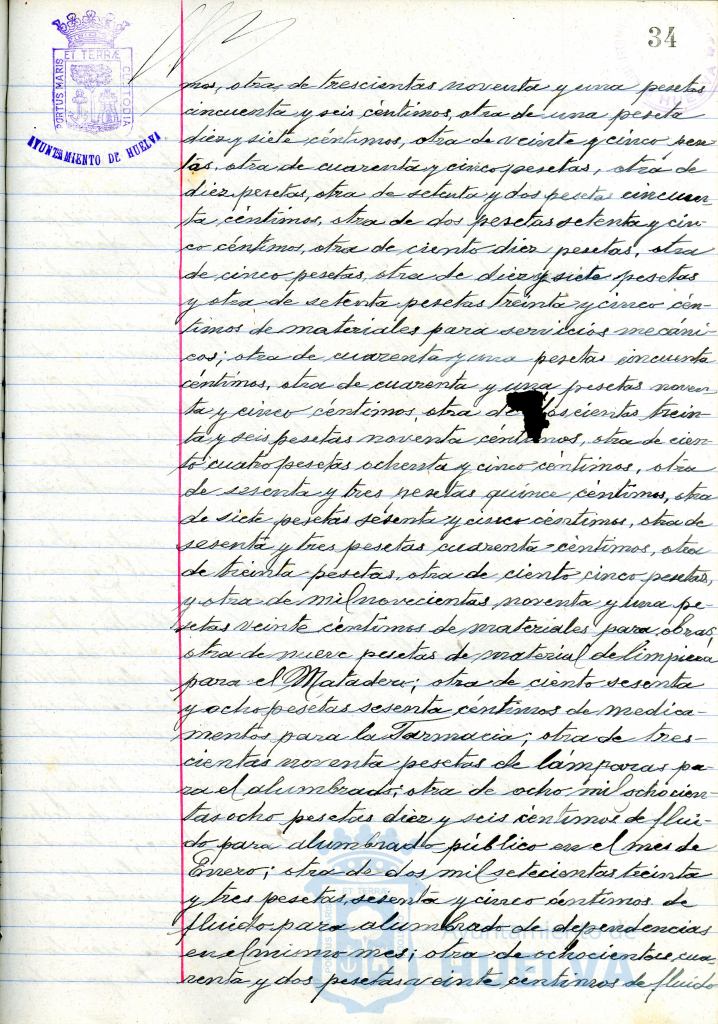 34
ET TERRÆ
PORTUS MARIS
CUSTODIA
AYUNTAMIENTO DE HUELVA
HUELVA
mos, otra de trescientas noventa y una pesetas
cincuenta y seis céntimos, otra de una peseta
diez y siete céntimos, otra de veinte y cinco pese-
tas, otra de cuarenta y cinco pesetas, otra de
diez pesetas, otra de setenta y dos pesetas cincuen-
ta céntimos, otra de dos pesetas setenta y cin-
co céntimos, otra de ciento diez pesetas, otra
de cinco pesetas, otra de diez y siete pesetas
y otra de setenta pesetas treinta y cinco cén-
timos de materiales para servicios mecáni-
cos; otra de cuarenta y una pesetas cincuenta
céntimos, otra de cuarenta y una pesetas noven-
ta y cinco céntimos, otra de doscientas trein-
ta y seis pesetas noventa céntimos, otra de cien-
to cuatro pesetas ochenta y cinco céntimos, otra
de sesenta y tres pesetas quince céntimos, otra
de siete pesetas sesenta y cinco céntimos, otra de
sesenta y tres pesetas cuarenta céntimos, otra
de treinta pesetas, otra de ciento cinco pesetas,
y otra de mil novecientas noventa y una pe-
setas veinte céntimos de materiales para obras,
otra de nueve pesetas de material de limpieza
para el Matadero; otra de ciento sesenta
y ocho pesetas sesenta céntimos de medica-
mentos para la Farmacia; otra de tres-
cientas noventa pesetas de lámparas pa-
ra el alumbrado; otra de ocho mil ochocien-
tas ocho pesetas diez y seis céntimos de flui-
do para alumbrado público en el mes de
Enero; otra de dos mil setecientas treinta
y tres pesetas, sesenta y cinco céntimos de
fluido para alumbrado de dependencias
en el mismo mes; otra de ochocientas cua-
renta y dos pesetas veinte céntimos de fluido
ET TERRÆ
PORTUS MARIS
Ayuntamiento de
HUELVA